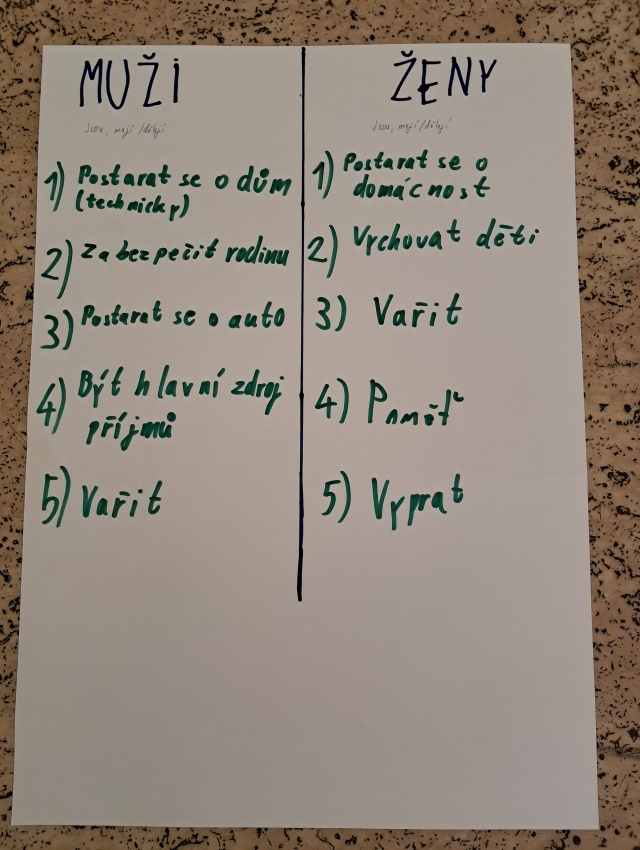 MUŽI
jsou, mají/dělají
1) Postarat se o dům
(technicky)
2) Zabezpečit rodinu
3) Postarat se o auto
4) Být hlavní zdroj
příjmů
5) Vařit
ŽENY
jsou, mají/dělají
1) Postarat se o
domácnost
2) Vychovat děti
3) Vařit
4)
5) Vyprat